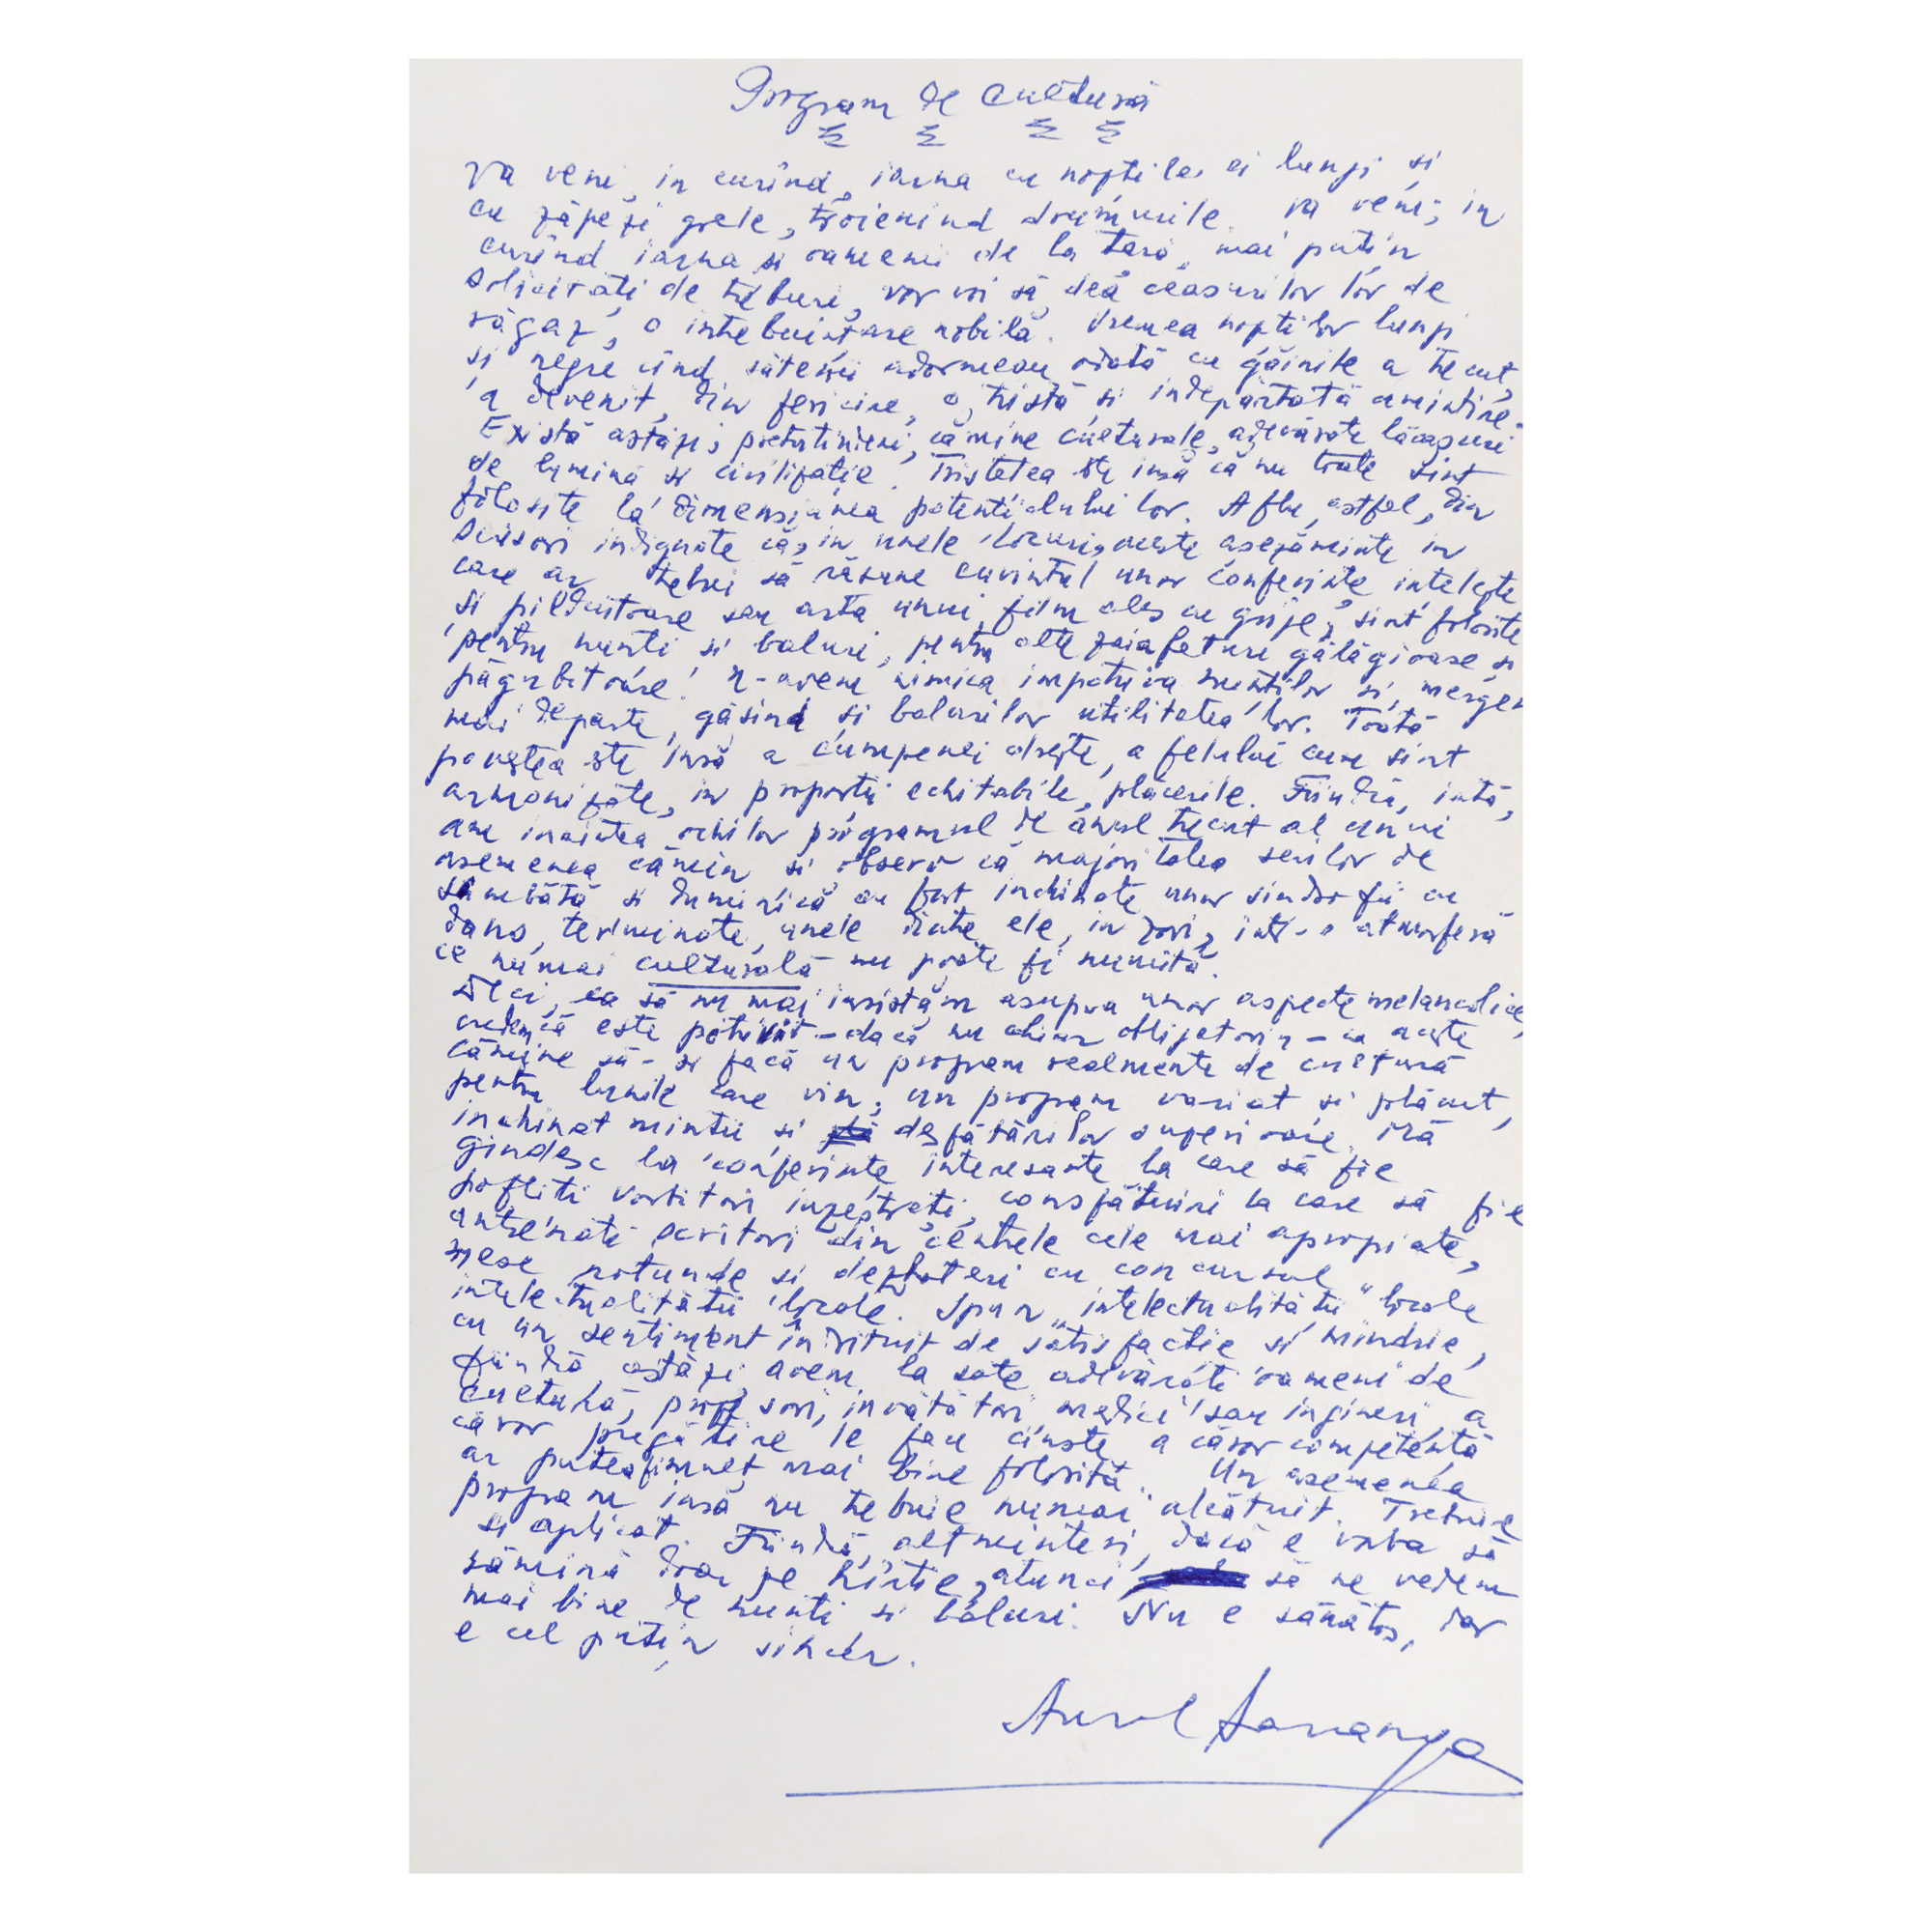 Program de Cultură
Va veni, in curînd, iarna cu nopțile ei lungi și
cu zăpezi grele, troienind drumurile. Va veni, in
curînd iarna și oamenii de la țară, mai puțin
solicitați de treburi, vor voi să dea ceasurilor lor de
răgaz, o intrebuințare nobilă. Vremea nopților lungi
și negre cînd sătenii adormeau odată cu găinile a trecut,
a devenit, din fericire, o tristă și indepărtată amintire.
Există astăzi, pretutindeni, cămine culturale, adevărate lăcașuri
de lumină și civilizație. Tristețea este insă că nu toate sint
folosite la dimensiunea potențialului lor. Aflu, astfel, din
scrisori indignate că, in unele locuri, aceste așezăminte in
care ar trebui să răsune cuvintul unor conferințe ințelepte
și pilduitoare sau arta unui film ales cu grije, sint folosite
pentru nunti si baluri, pentru alte zaiafeturi gălăgioase si
păgubitoare! N-avem nimica impotriva nunților si, mergen
mai departe, găsind și balurilor utilitatea lor. Toată
povestea este insă a cumpenei drepte, a felului cum sint
armonizate, in proporții echitabile, plăcerile. Fiindcă, iată,
am inaintea ochilor programul de anul trecut al unui
asemenea cămin si observ că majoritatea serilor de
sîmbătă si duminică au fost inchinate unor sindrofii cu
dans, terminate, unele dintre ele, in zori, intr-o atmosferă
ce numai culturală nu poate fi numită.
Deci, ca să nu mai insistăm asupra unor aspecte melancolice,
credem că este potrivit - dacă nu chiar obligatoriu - ca aceste
cămine să-și facă un program realmente de cultură
pentru lunile care vin; un program variat si plăcut,
inchinat minții și desfătărilor superioare. Mă
gindesc la conferințe interesante la care să fie
poftiti vorbitori inzestrați, consfătuiri la care să fie
antrenati scriitori din centrele cele mai apropiate,
mese rotunde si dezbateri cu concursul
intelectualității locale. Spun "intelectualității" locale
cu un sentiment indrituit de satisfacție si mindrie,
fiindcă astăzi avem la sate adevărați oameni de
cultură, profesori, invățători, medici sau ingineri, a
căror pregătire le face cinste, a căror competență
ar putea fi mult mai bine folosită. Un asemenea
program insă nu trebuie numai alcătuit. Trebuie
si aplicat. Fiindcă, altminteri, dacă e vorba să
rămină doar pe hîrtie, atunci să ne vedem
mai bine de nunti si baluri. Nu e sănătos, dar
e cel puțin sincer.
Aurel Baranga